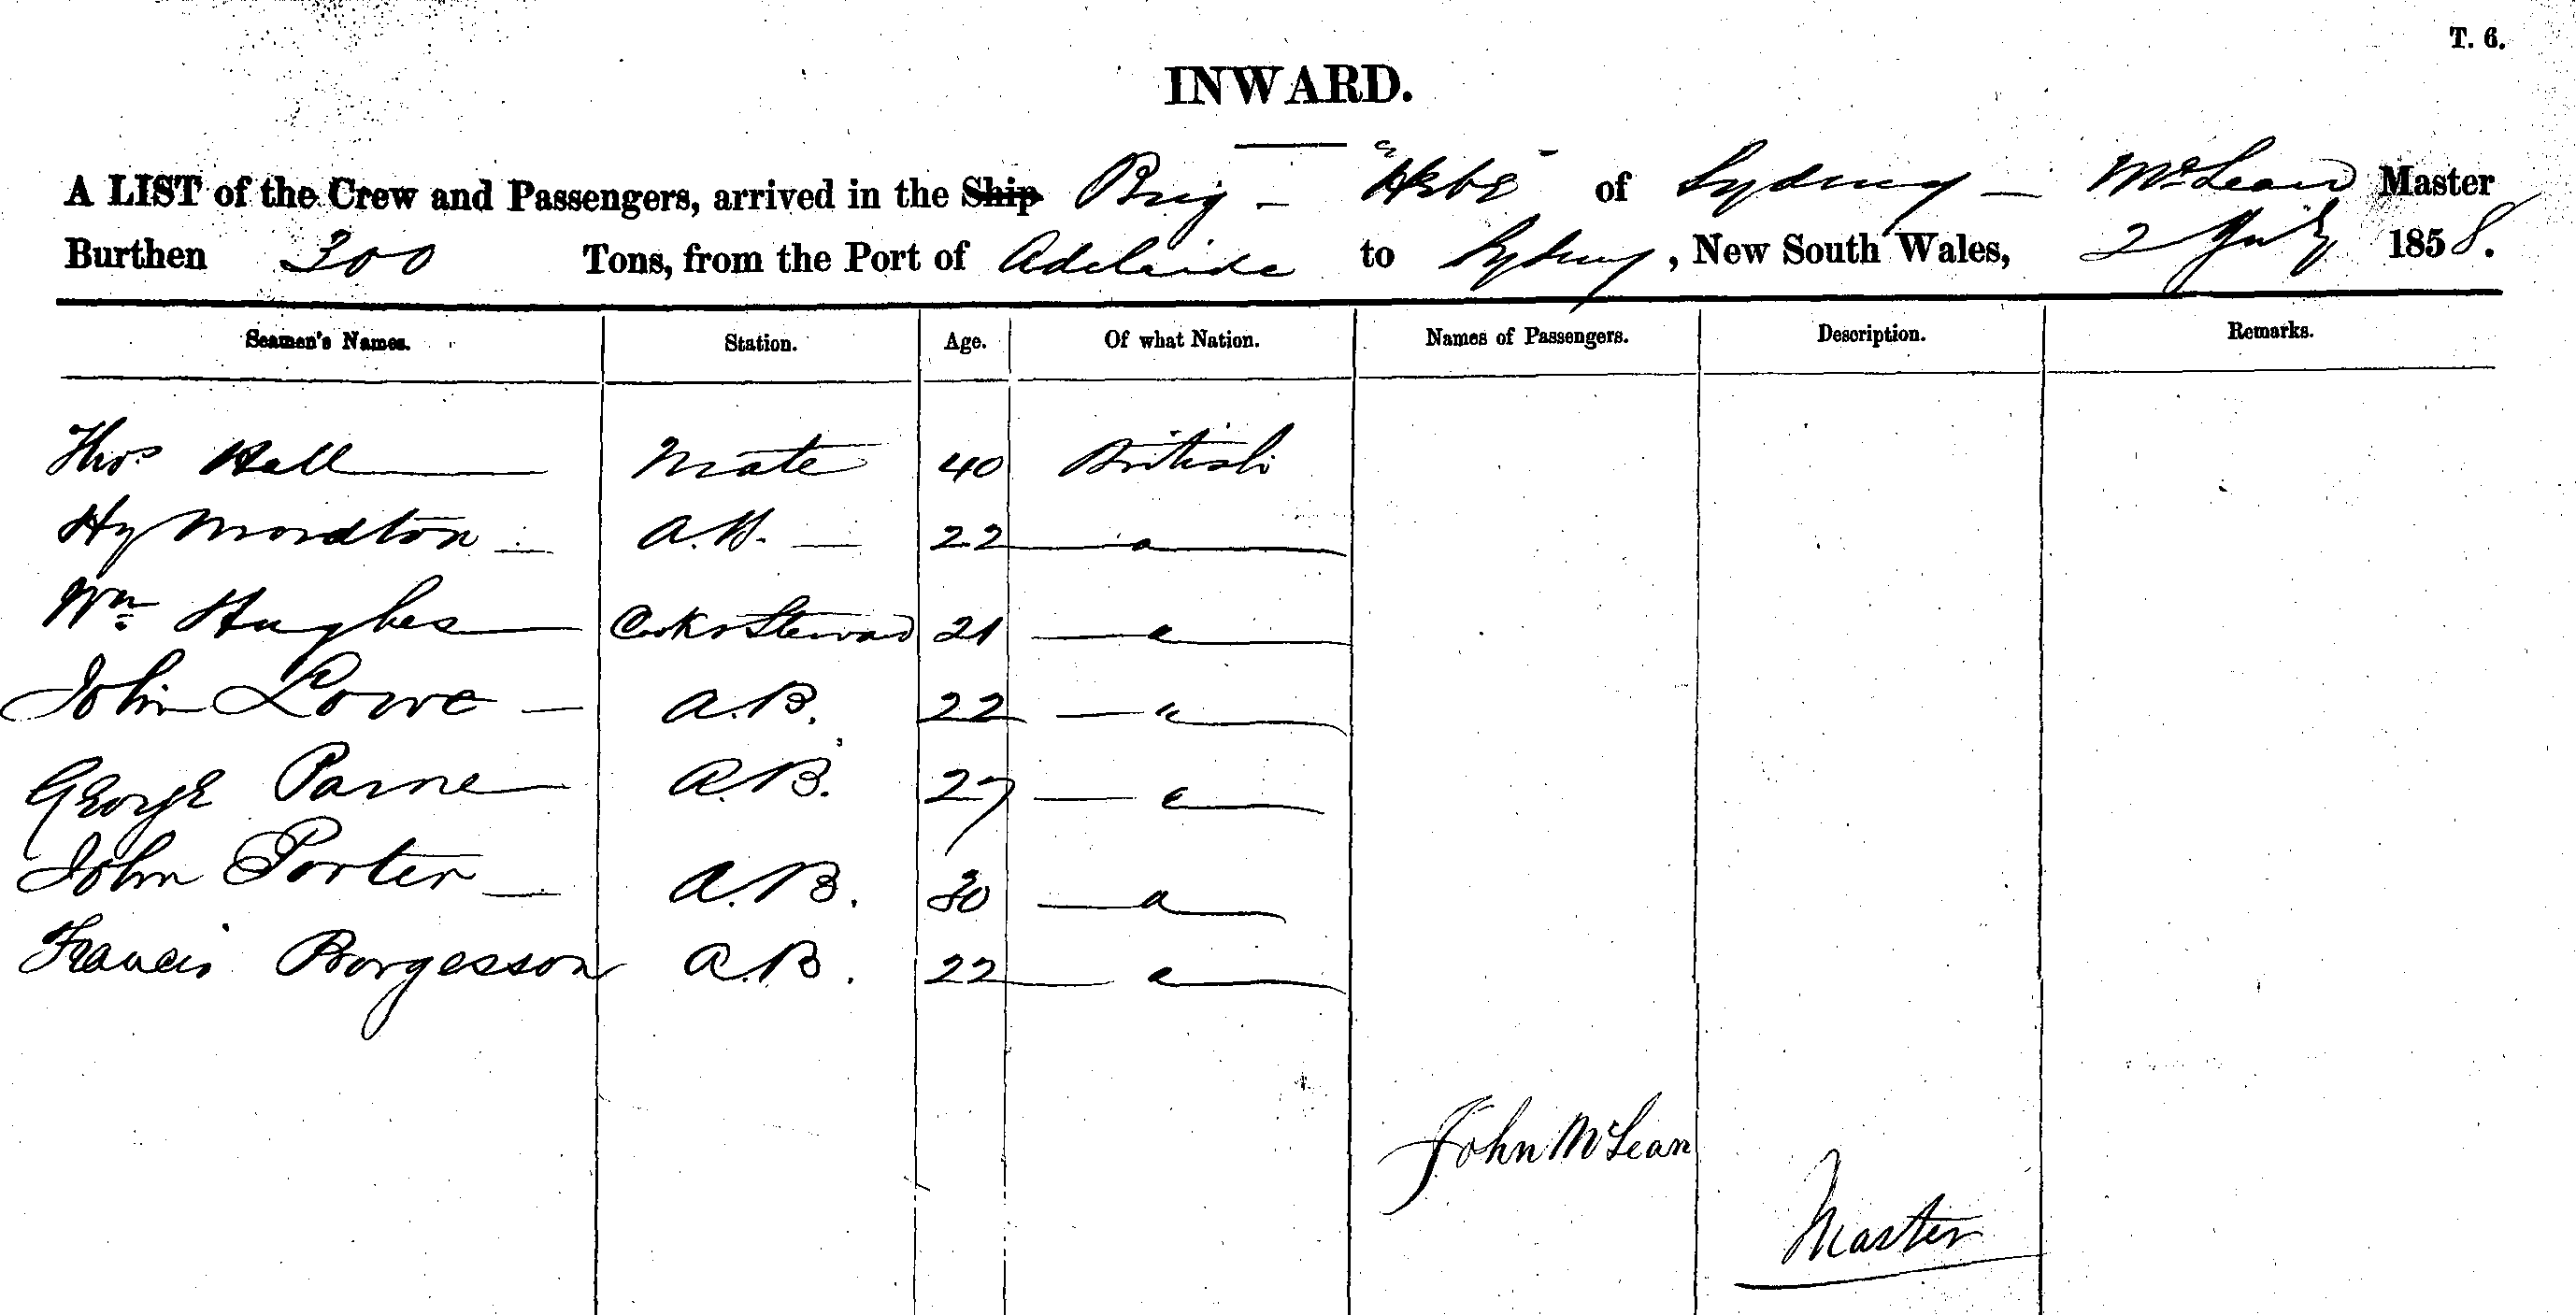 T. 6.
INWARD.
A LIST of the Crew and Passengers, arrived in the Ship Brig - "Hebe" of Sydney - McLean Master
Burthen 300 Tons, from the Port of Adelaide to Sydney, New South Wales, 2 July 1858.
Seamen's Names. Station. Age. Of what Nation. Names of Passengers. Description. Remarks.
Thos Hall Mate 40 British
Hy Mordton A.B. 22 "
Wm Hughes Cook & Steward 21 "
John Lowe A.B. 22 "
George Parne A.B. 27 "
John Porter A.B. 30 "
Francis Borgesson A.B. 22 "
John McLean
Master